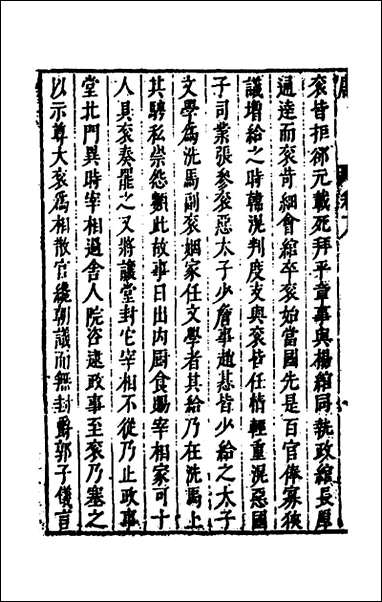 袞皆拒卻元載死拜平章事與楊綰同執政綰長厚
通達而袞苛細會綰卒袞始當國先是百官俸寡狹
議增給之時韓滉判度支與袞皆任情輕重滉惡國
子司業張參袞惡太子少詹事趙惎皆少給之太子
文學爲洗馬副袞姻家任文學者其給乃在洗馬上
其騁私崇怨類此故事日出內厨食賜宰相家可十
人具袞奏罷之又將議堂封它宰相不從乃止政事
堂北門異時宰相過舍人院咨逮政事至袞乃塞之
以示尊大袞爲相散官纔朝議而無封爵郭子儀言